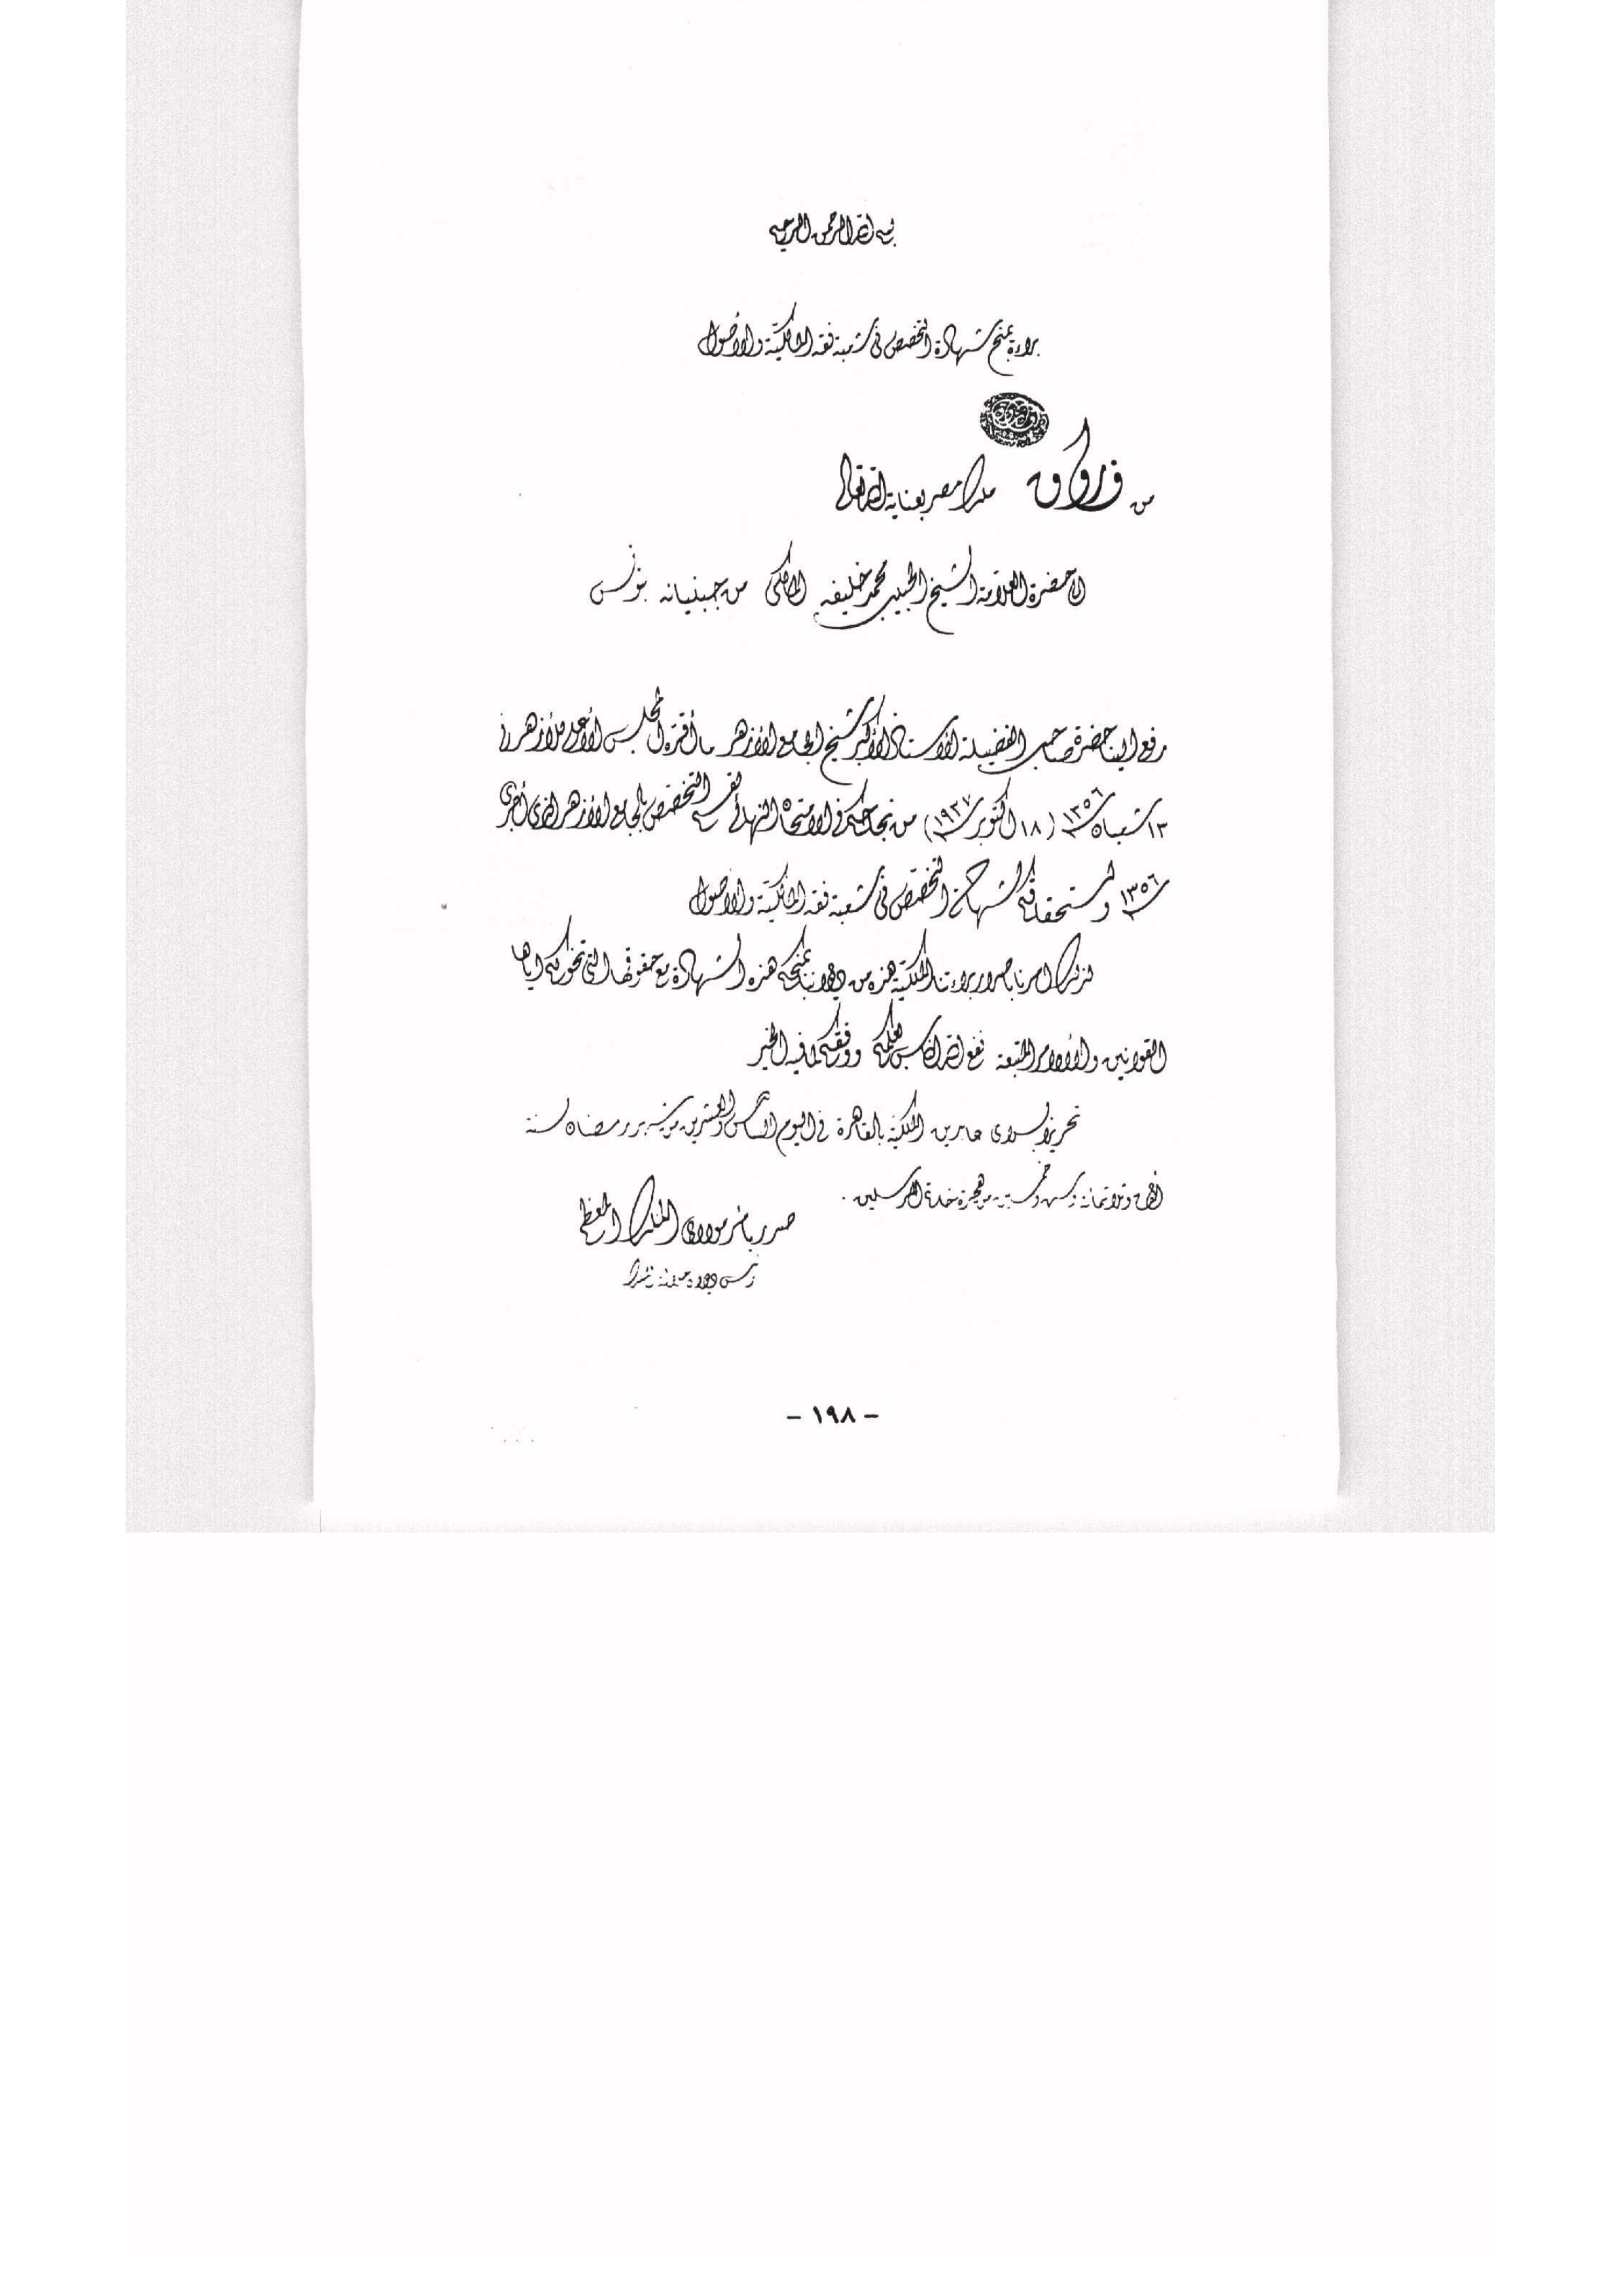 بسم الله الرحمن الرحيم
براءة بمنح شهادة التخصص في شعبة فقه المالكية والأصول
من فاروق ملك مصر بعناية الله تعالى
إلى حضرة العلامة الشيخ الحبيب محمد خليفه المالكى من جبنيانه بتونس
رفع إلينا حضرة صاحب الفضيلة الأستاذ الأكبر شيخ الجامع الأزهر ما أقره المجلس الأعلى للأزهر في
١٣ شعبان ١٣٥٦ (١٨ أكتوبر ١٩٣٧) من نجاحكم في الامتحان النهائي لقسم التخصص بالجامع الأزهر الذى أجرى
١٣٥٦ واستحقاقكم لشهادة التخصص في شعبة فقه المالكية والأصول
لذلك أمرنا بإصدار براءتنا الملكية هذه من ديواننا بمنحكم هذه الشهادة مع حقوقها التي تخولكم إياها
القوانين والأوامر المتبعة نفع الله الناس بعلمكم ووفقكم لما فيه الخير
تحريرا بسراى عابدين الملكية بالقاهرة في اليوم والعشرين من شهر رمضان لسنة
ألف وثلاثمائة وست وخمسين من هجرة خاتم المرسلين.
صدر بأمر مولانا الملك المعظم
رئيس ديوان جلالة الملك
- ١٩٨ -